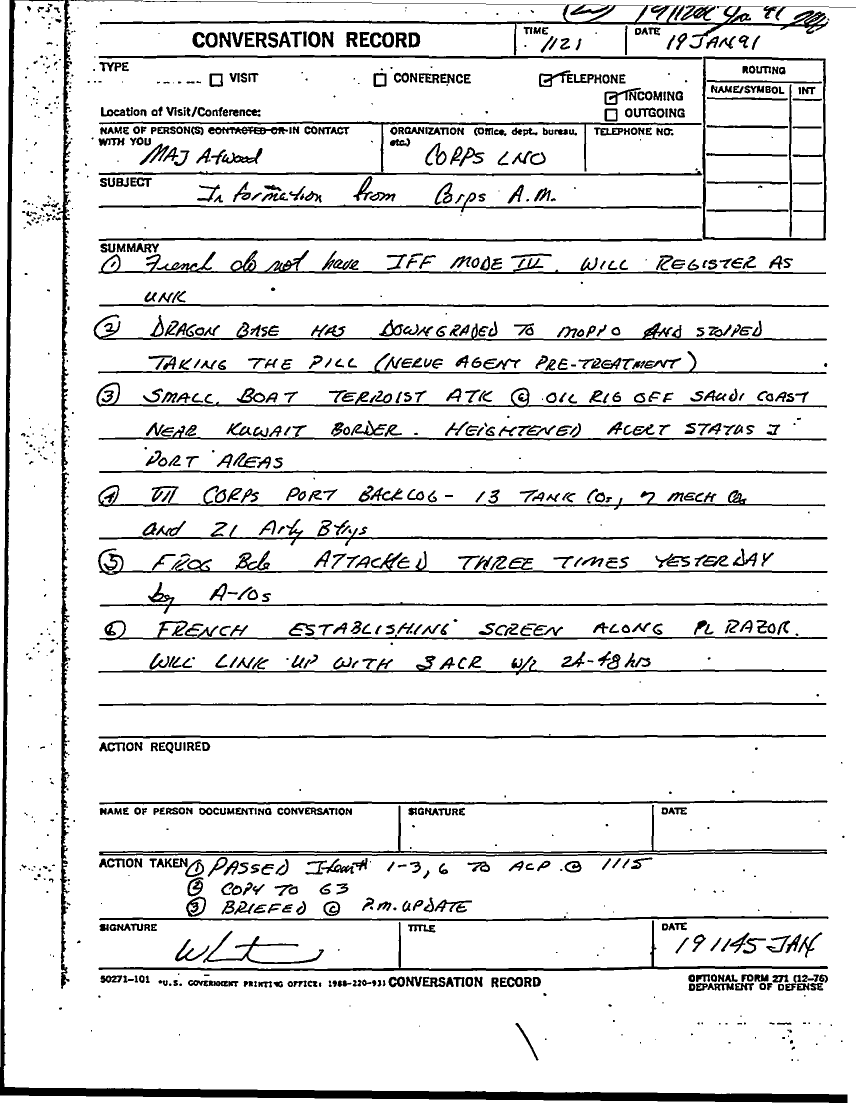 CONVERSATION RECORD
TIME
1121
DATE
19 JAN 91
TYPE
VISIT
CONFERENCE
TELEPHONE
INCOMING
OUTGOING
ROUTING
NAME/SYMBOL
INT
Location of Visit/Conference:
NAME OF PERSON(S) CONTACTED OR IN CONTACT
WITH YOU
MAJ Atwood
ORGANIZATION (Office, dept., bureau,
etc.)
CORPS LNO
TELEPHONE NO:
SUBJECT
Information from Corps A.M.
SUMMARY
① French do not have IFF MODE III. WILL REGISTER AS
UNK
② DRAGON BASE HAS DOWNGRADED TO MOPP 0 AND STOPED
TAKING THE PILL (NERVE AGENT PRE-TREATMENT)
③ SMALL BOAT TERROIST ATK @ OIL RIG OFF SAUDI COAST
NEAR KUWAIT BORDER. HEIGHTENED ALERT STATUS I
PORT AREAS
④ VII CORPS PORT BACKLOG - 13 TANK Cos, 7 MECH Cos
and 21 Arty Btrys
⑤ FROG Bde ATTACKED THREE TIMES YESTERDAY
by A-10s
⑥ FRENCH ESTABLISHING SCREEN ALONG PL RAZOR.
WILL LINK UP WITH 3 ACR W/I 24-48 hrs
ACTION REQUIRED
NAME OF PERSON DOCUMENTING CONVERSATION
SIGNATURE
DATE
ACTION TAKEN ① PASSED Item# 1-3, 6 TO ACP @ 1115
② COPY TO G3
③ BRIEFED @ P.M. UPDATE
SIGNATURE
TITLE
DATE
191145 JAN
50271-101
*U.S. GOVERNMENT PRINTING OFFICE: 1988-220-931
CONVERSATION RECORD
OPTIONAL FORM 271 (12-76)
DEPARTMENT OF DEFENSE